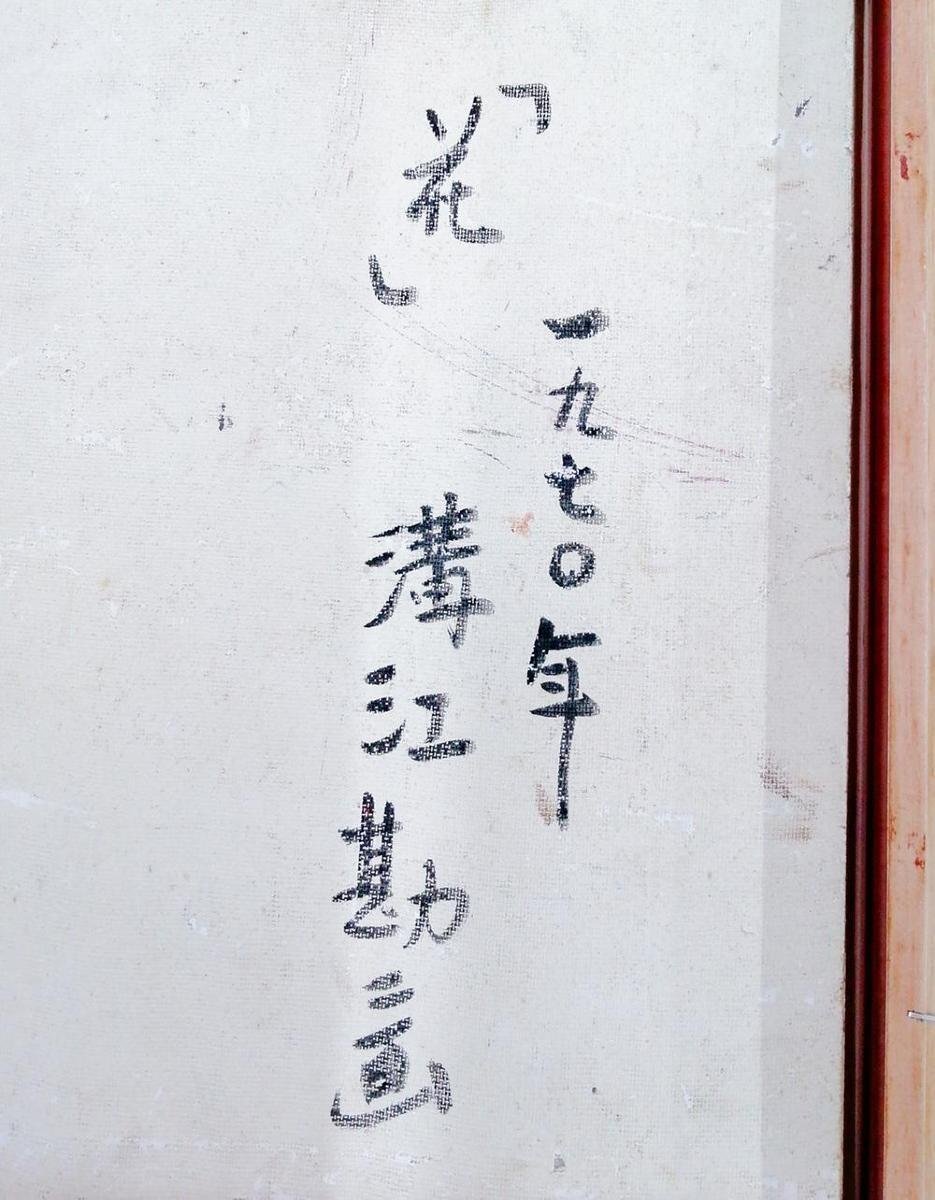 「花」
一九七〇年
溝江勘二画